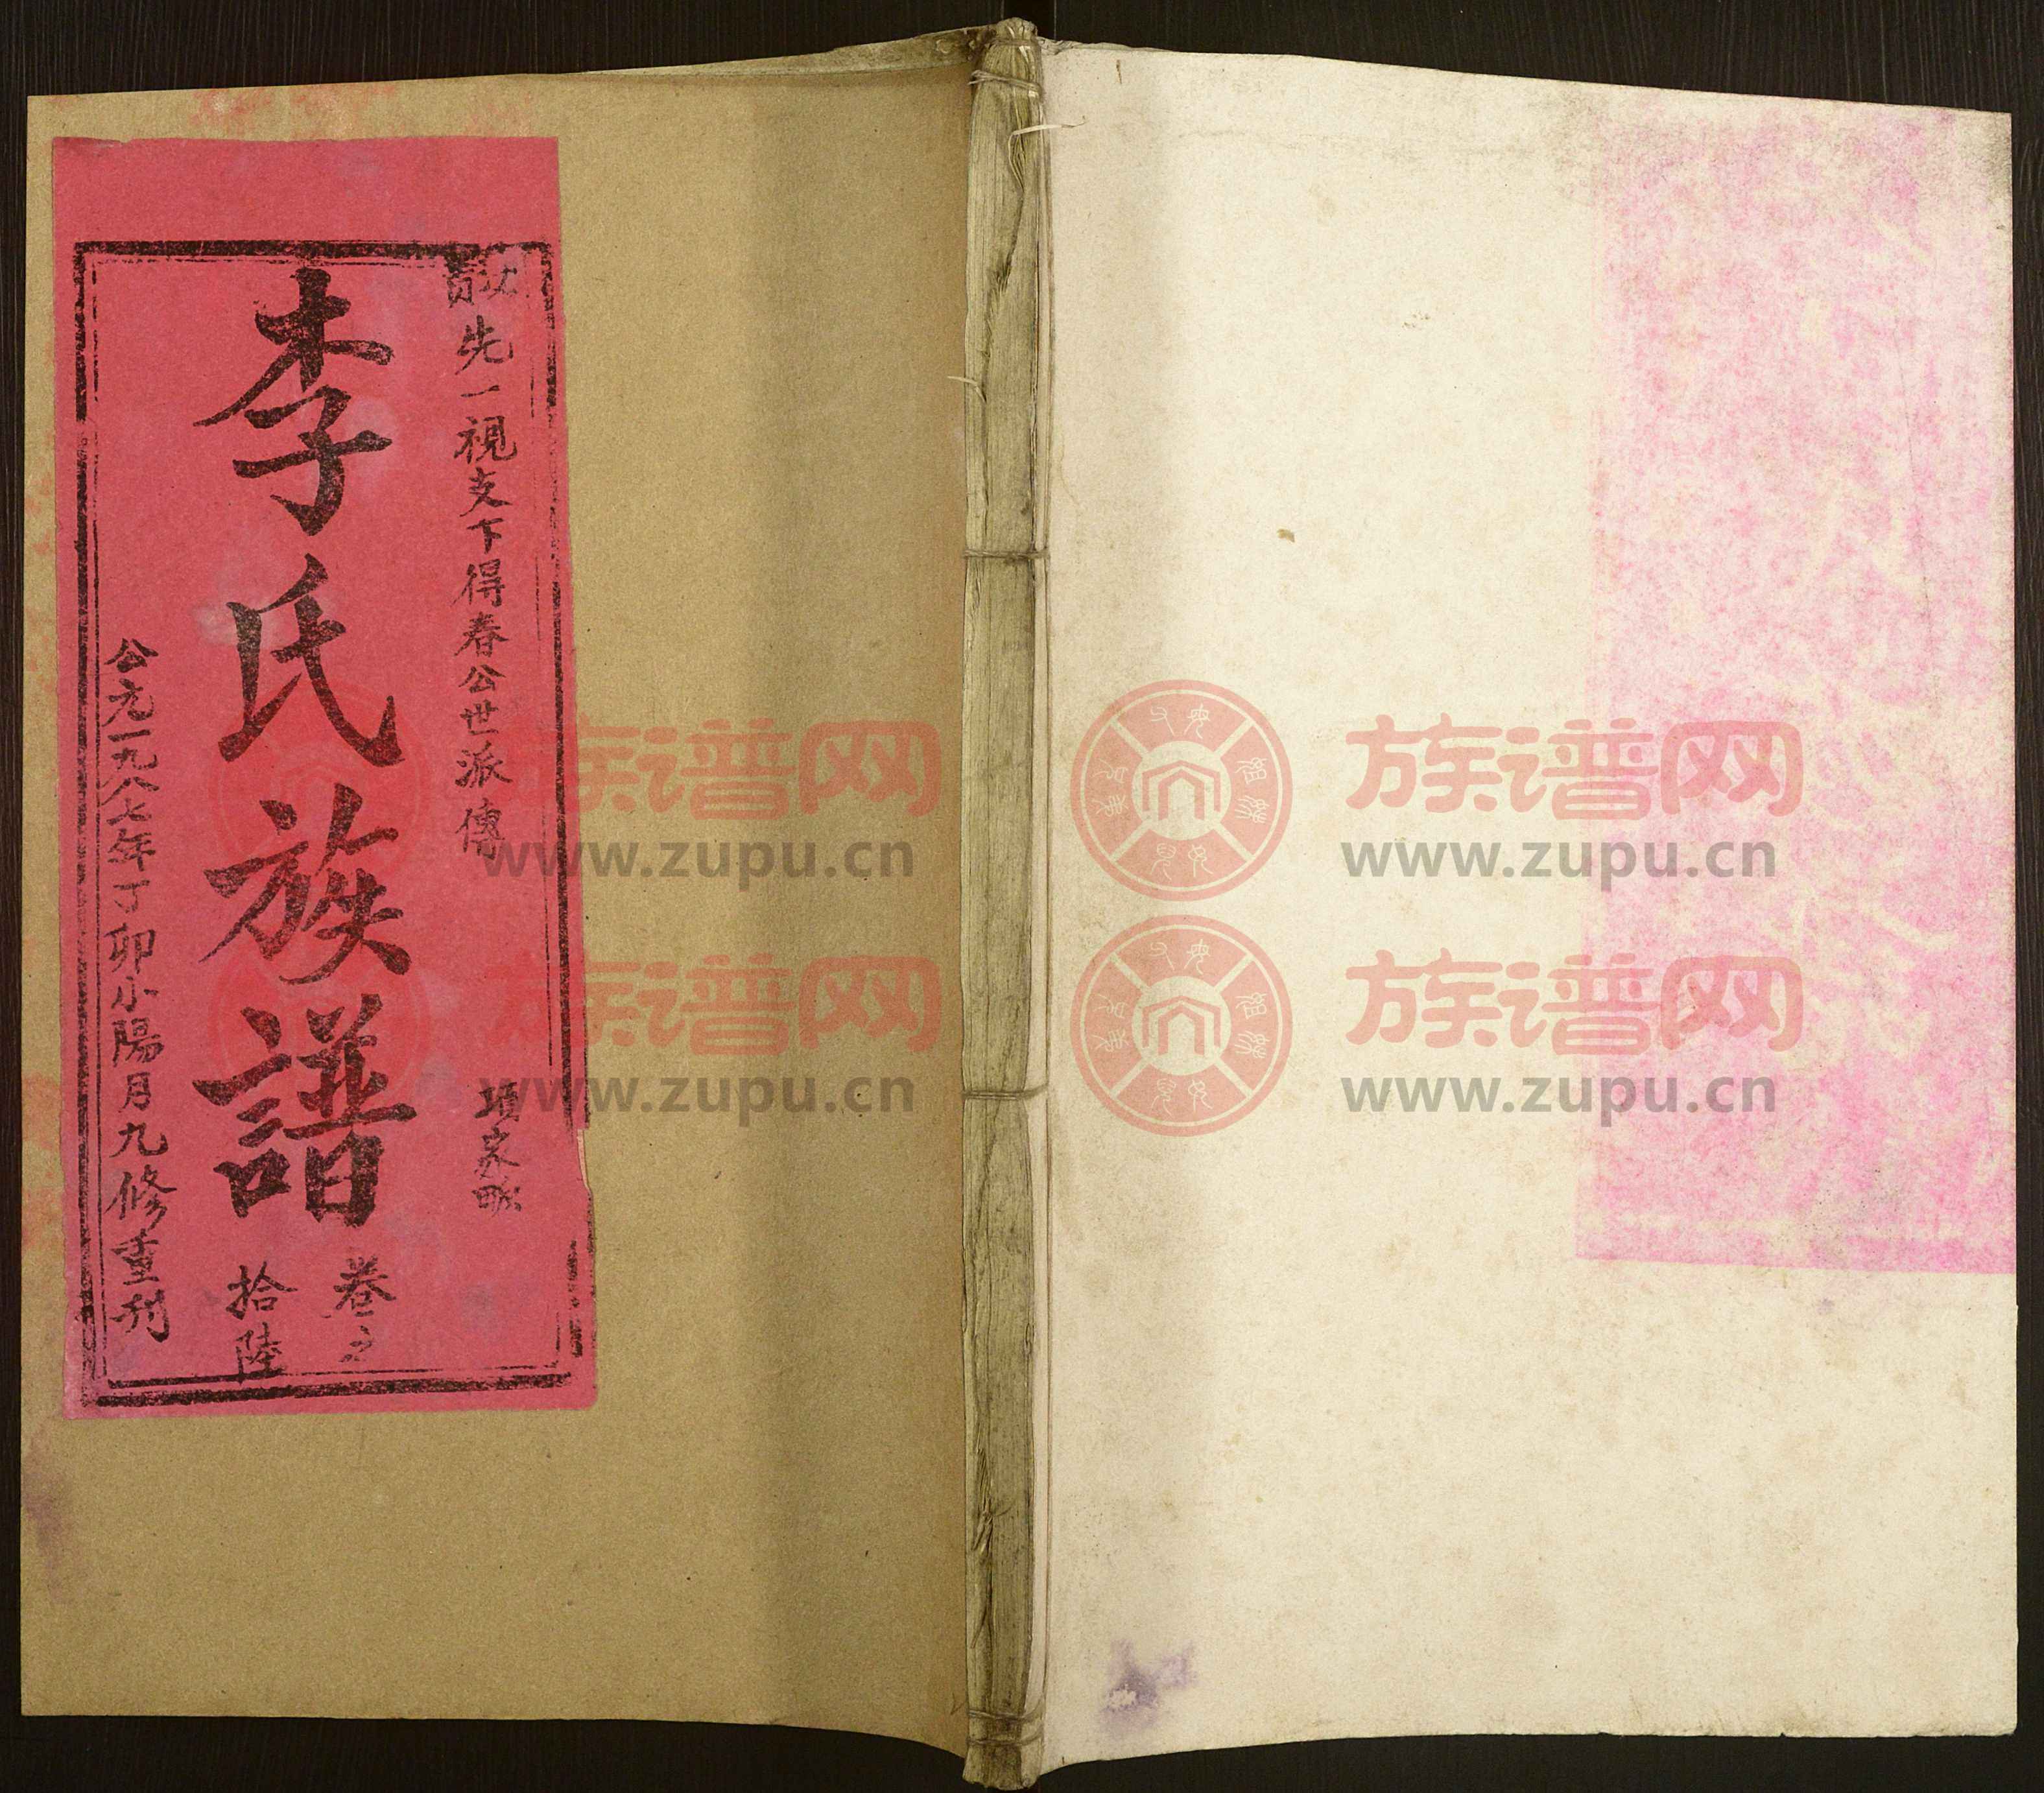 先一視支下得春公世派傳
項家
李氏族譜
卷之
拾陸
公元一九八七年丁卯小陽月九修重刊
族谱网
www.zupu.cn
族谱网
www.zupu.cn
族谱网
www.zupu.cn
族谱网
www.zupu.cn